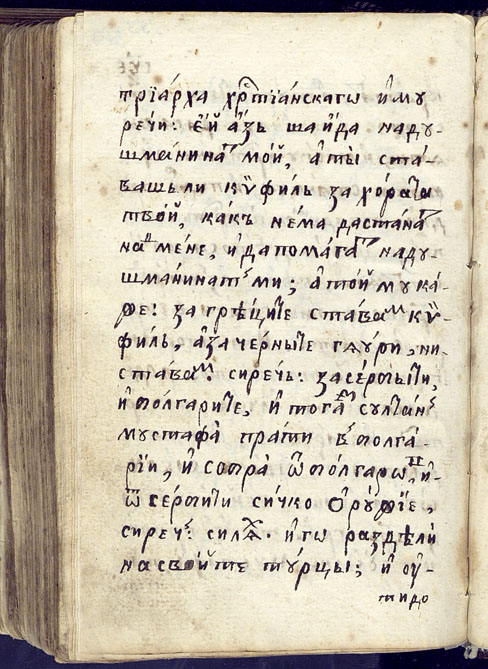 трїа́рха хр҃тїа́нскагѡ и҆му
речи: е҆́й а҆́зь ша и҆́да наду-
шма́нина ᷮ мо́й, а҆ ты̀ ста́-
вашь ли кѷ́филь за хо́рата
тво́й, ка́къ не́ма даста́на
на мѐне, и҆ да пома́га наду-
шма́нинатъ ми; а҆ то́й му ка́-
же: за гре́цїте ста́вамъ кѷ-
филь, а҆ за че́рныте гѧѵ́ри, ни-
ста́вамъ. сиречь: за се́рбыти,
и҆ бо́лгарите, и҆ тога̀ѵ султа́нъ
мустафа̀ пра́ти в бо́лга-
рїи, и҆ собра̀ ѿ бо́лгары, и҆-
ѿ се́рбити си́чко ѻ҆рꙋ́жїе,
сиречь: сила́х. и҆ гѡ раздѣлѝ
на сво́йте тꙋ́рцы; и҆ оу҆-
тидо